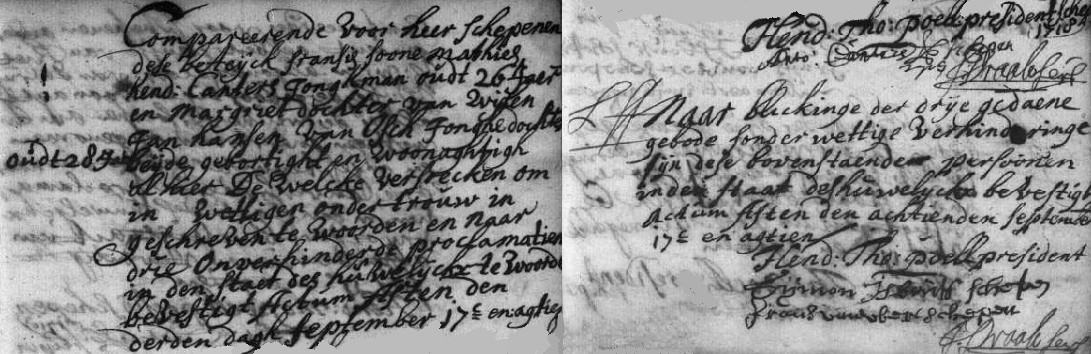 Compareerende voor heer schepenen
dese betteyck fransis soone mathies
hend: Canters Jonghman oudt 26 Jaer
en margriet dochter van wijlen
Jan hansen van Osch Jonghe dochter
oudt 28 Jaer beijde gebortigh en woonaghtigh
alhier De welcke verSoecken om
in wettigen ondertrouw in
geschreven te woorden en naar
drie Onverhinderde proclamatien
in den staet des huwelycx te woorde
bevestigt Actum Asten den
derden dagh September 17c en agtien
Hend: Tho: poell president
1718
Anto. Canters
Naar blickinge der drije gedaene
gebode sonder wettige verhinderinge
sijn dese bovenstaende persoonen
in den staat des huwelycx bevestigt
Actum Asten den achtienden Septemb
17c en agtien
Hend: Tho: poell president
schepen
schepen